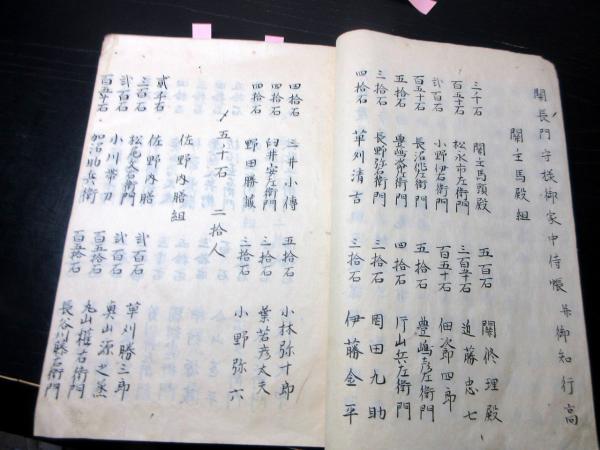 関長門守様御家中侍帳并御知行高
関主馬殿組
三千石 関主馬頭殿 五百石 関修理殿
百五十石 松永市左衛門 三百五十石 近藤忠七
弐百石 小野伊右衛門 百五十石 佃次郎四郎
百五十石 長沼作左衛門 五拾石 豊嶋彦左衛門
五拾石 豊嶋次左衛門 四拾石 片山兵左衛門
三拾石 長野弥右衛門 二拾石 岡田九助
四拾石 草刈清吉 三拾石 伊藤金平
四拾石 三井小傳 五拾石 小林弥十郎
四拾石 臼井安左衛門 三拾石 葉若彦太夫
四拾石 野田勝 三拾石 小野弥六
五十石 二拾人
佐野内膳組
貳千石 佐野内膳 弐百石 草刈勝三郎
三百石 松尾久右衛門 弐百石 奥山源之丞
弐百石 小川帯刀 百五拾石 丸山権右衛門
百五十石 加治助兵衛 百五拾石 長谷川藤右衛門